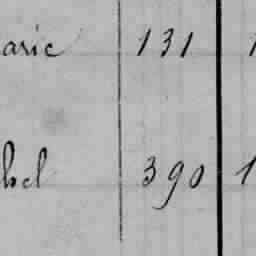 arie 131 1
hel 390 1